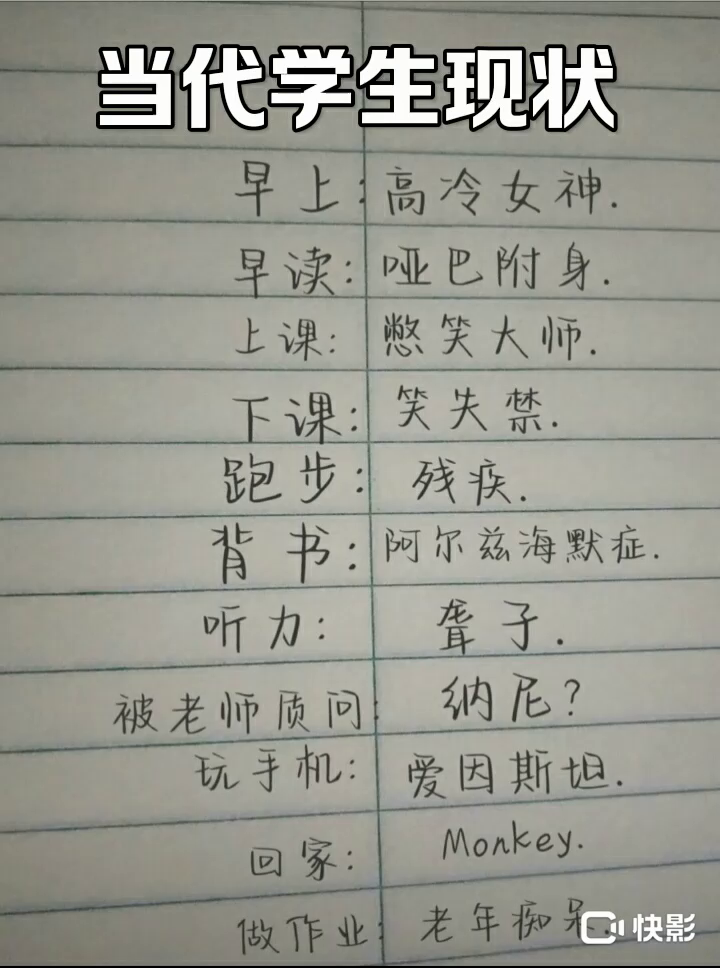 当代学生现状
早上:高冷女神.
早读:哑巴附身.
上课:憋笑大师.
下课:笑失禁.
跑步:残疾.
背书:阿尔兹海默症.
听力:聋子.
被老师质问:纳尼?
玩手机:爱因斯坦.
回家:Monkey.
做作业:老年痴呆.
快影